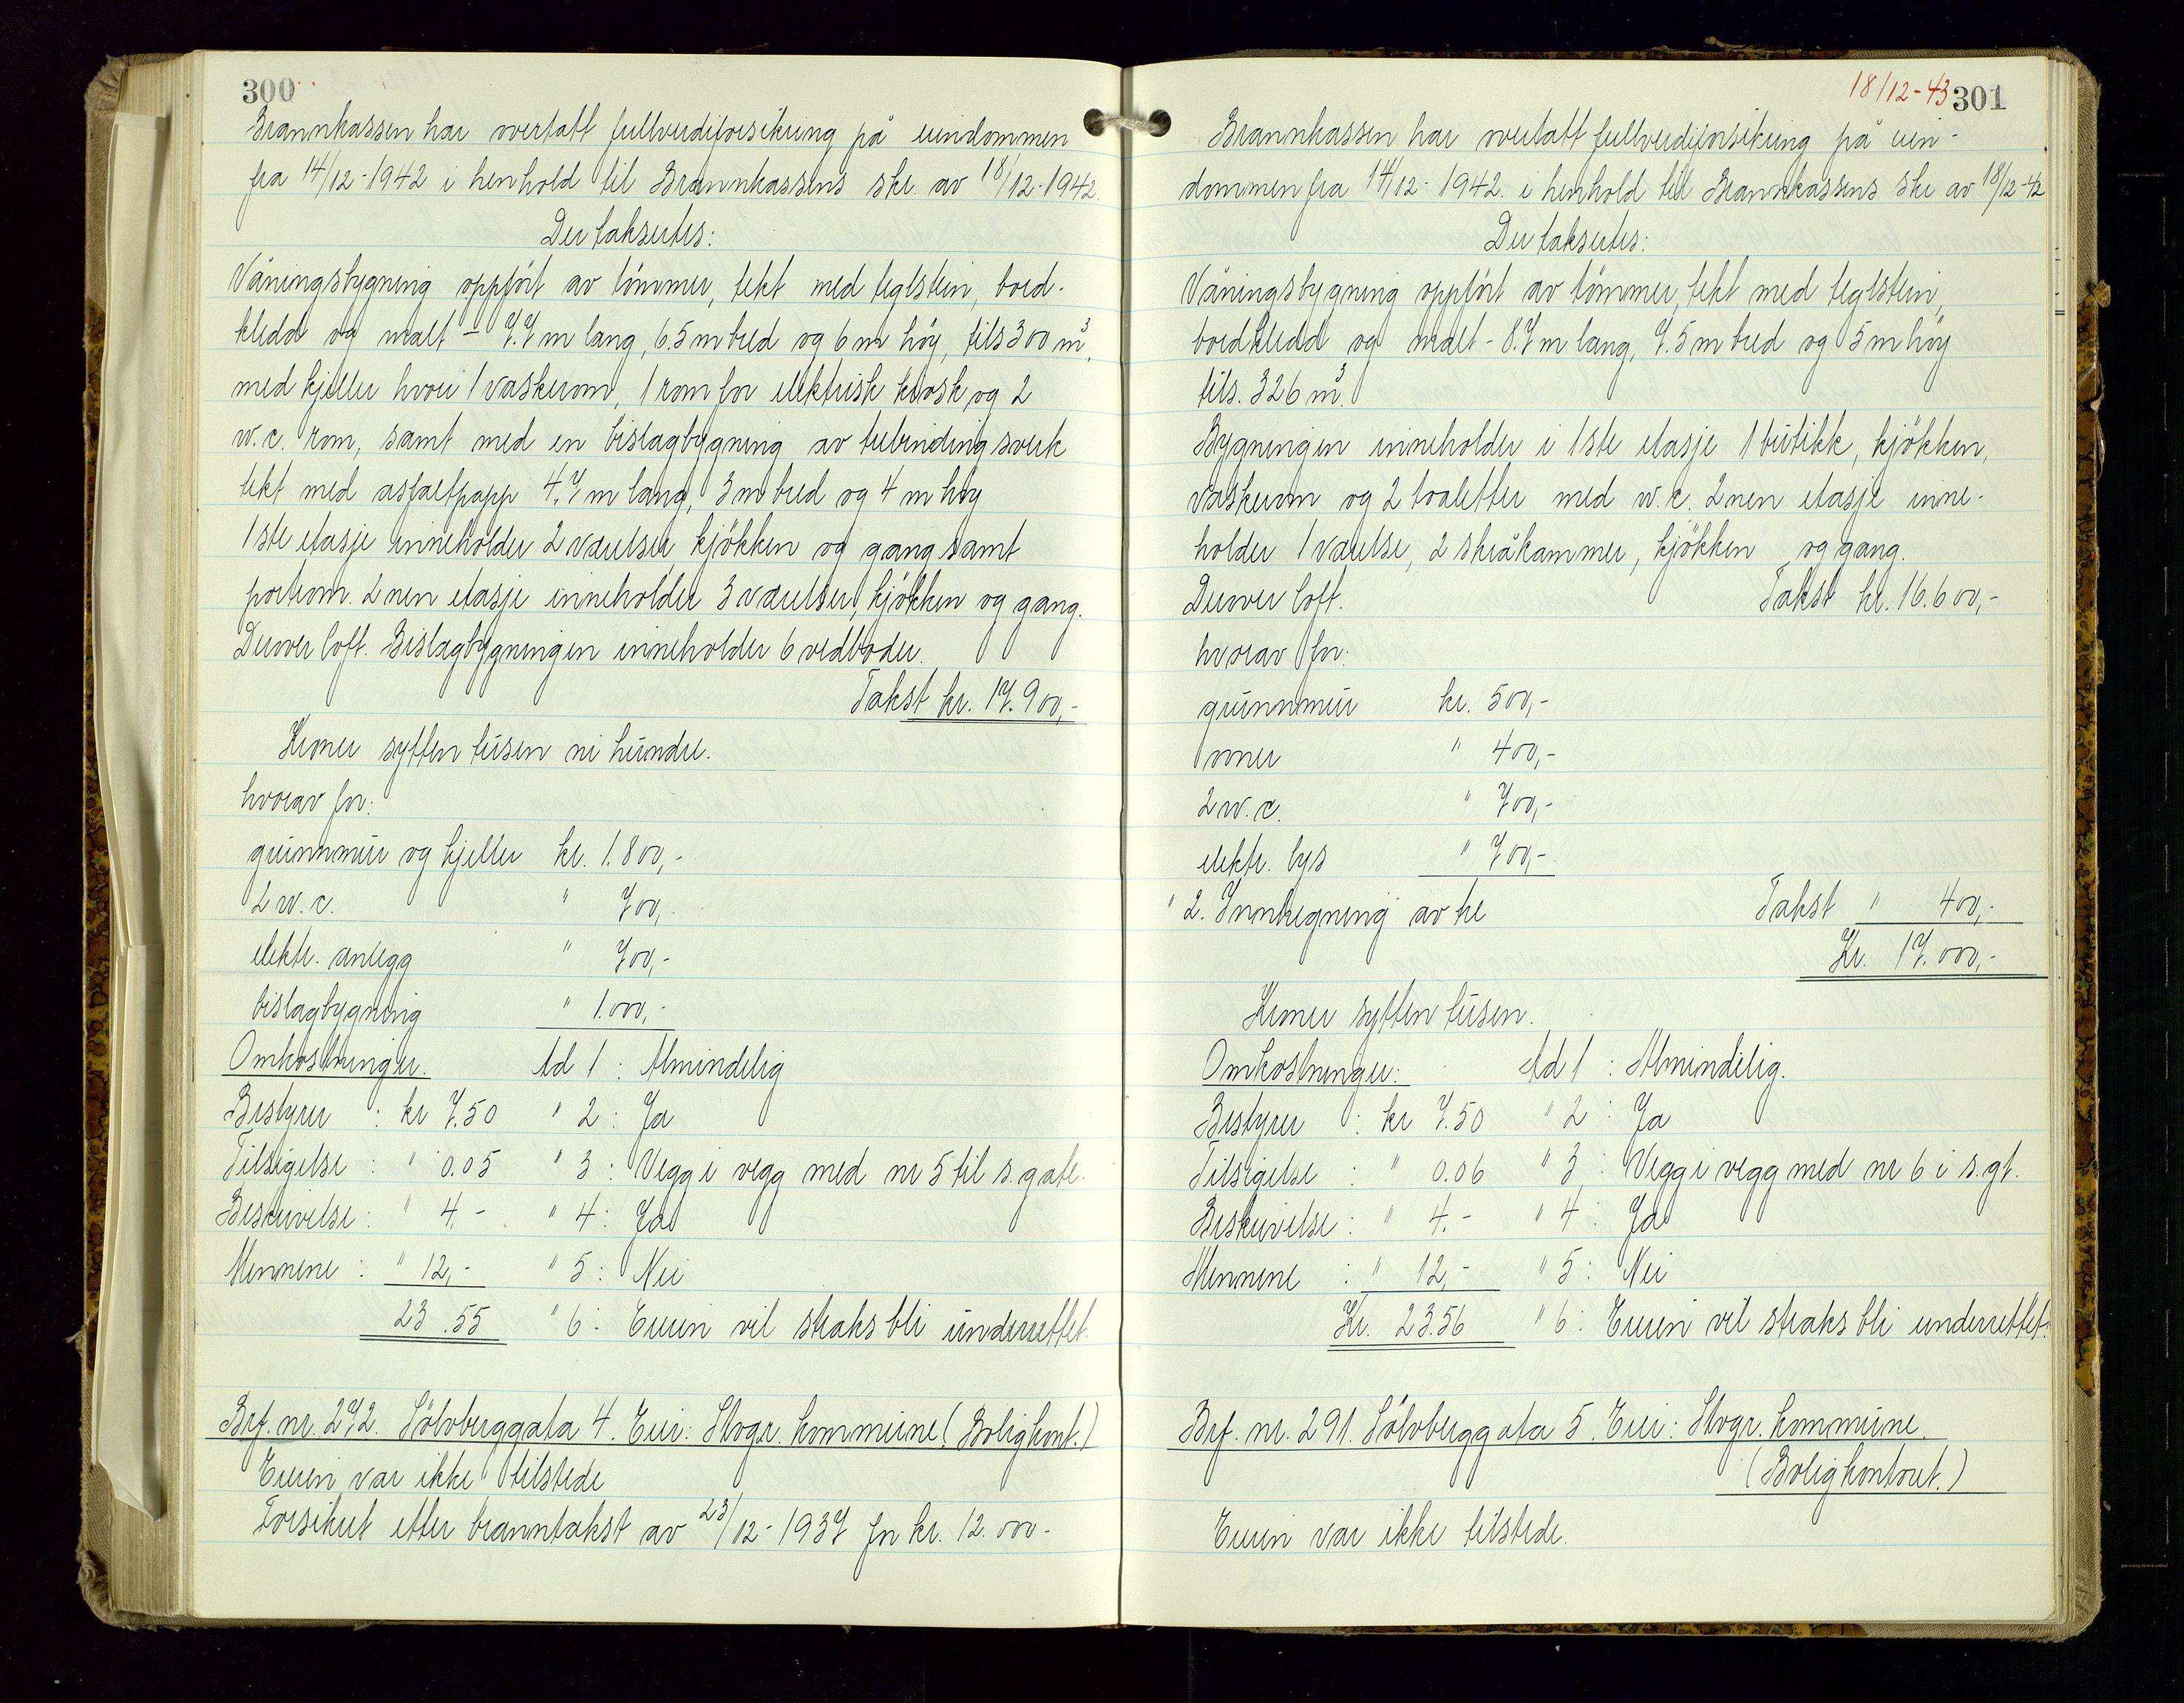 300
Brannkassen har overtatt fullverdiforsikring på eiendommen
fra 14/12-1942 i henhold til Brannkassens skr. av 18/12-1942.
Der takseres:
Våningsbygning oppført av tömmer, tekt med teglstein, bord-
kledd og malt - 7.7 m lang, 6.5 m bred og 6 m höy, tils 300 m³,
med kjeller hvori 1 vaskerom, 1 rom for elektrisk kiosk og 2
w.c. rom, samt med en bislagbygning av utbindingsverk
tekt med asfaltpapp 4.7 m lang, 3 m bred og 4 m höy
1ste etasje inneholder 2 værelser, kjökken og gang samt
portrom. 2nen etasje inneholder 3 værelser, kjökken og gang.
Derover loft. Bislagbygningen inneholder 6 vedboder.
Takst kr. 17.900,-
Kroner sytten tusen ni hundre.
hvorav for:
grunnmur og kjeller kr. 1.800,-
2 w.c. " 700,-
elektr. anlegg " 700,-
bislagbygning " 1.000,-
Omkostninger. Ad 1 : Almindelig
Bestyrer : kr 7.50 " 2 : Ja
Tilsigelse : " 0.05 " 3 : Vegg i vegg med nr 5 til s. gate.
Beskrivelse : " 4.- " 4 : Ja
Mennene : " 12,- " 5 : Nei
23.55 " 6 : Eieren vil straks bli underrettet.
Brf. nr. 272. Sölvberggata 4. Eier: Stvgr. kommune. (Boligkont.)
Eieren var ikke tilstede
Forsikret etter branntakst av 23/12-1937 for kr. 12.000-
18/12-43 301
Brannkassen har overtatt fullverdiforsikring på eien-
dommen fra 14/12-1942. i henhold til Brannkassens skr av 18/12-42
Der takseres:
Våningsbygning oppfört av tömmer, tekt med teglstein,
bordkledd og malt - 8.7 m lang, 7.5 m bred og 5 m höy
tils. 326 m³.
Bygningen inneholder i 1ste etasje 1 butikk, kjökken,
vaskerom og 2 toaletter med w.c. 2nen etasje inne-
holder 1 værelse, 2 skråkammer, kjökken og gang.
Derover loft. Takst kr. 16.600,-
hvorav for:
grunnmur kr. 500,-
ovner " 400,-
2 w.c. " 700,-
elektr. lys " 700,-
" 2. Innhegning av tre Takst " 400,-
Kr. 17.000,-
Kroner sytten tusen.
Omkostninger: Ad 1 : Almindelig.
Bestyrer : kr 7.50 " 2 : Ja
Tilsigelse : " 0.06 " 3 : Vegg i vegg med nr 6 i s.gt.
Beskrivelse : " 4.- " 4 : Ja
Mennene : " 12,- " 5 : Nei
Kr. 23.56 " 6 : Eieren vil straks bli underrettet.
Brf. nr. 291. Sölvberggata 5. Eier: Stvgr. kommune.
(Boligkontoret.)
Eieren var ikke tilstede.